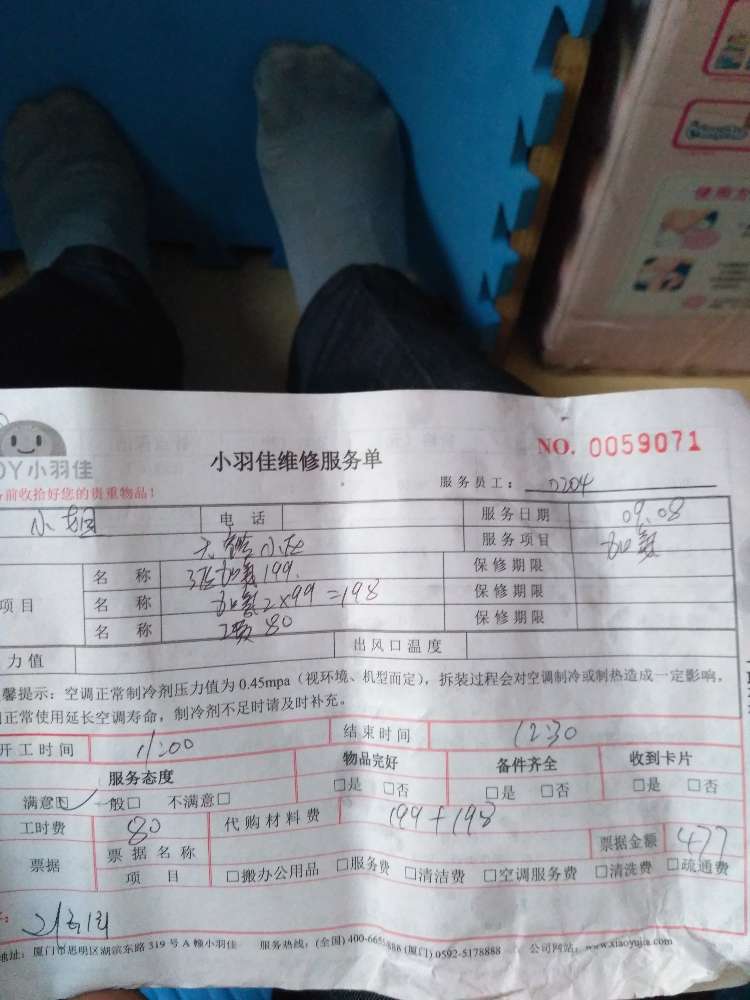 使用方
小羽佳维修服务单
NO. 0059071
DY小羽佳
前收拾好您的贵重物品！
服务员工： 0204
小姐 电话 服务日期 09.08
服务项目 加氟
名称 3匹加氟199 保修期限
项目 名称 加氟2×99=198 保修期限
名称 工费80 保修期限
力值 出风口温度
馨提示：空调正常制冷剂压力值为0.45mpa（视环境、机型而定），拆装过程会对空调制冷或制热造成一定影响，
正常使用延长空调寿命，制冷剂不足时请及时补充。
开工时间 11200 结束时间 1230
服务态度 物品完好 备件齐全 收到卡片
满意☑ 一般□ 不满意□ □是 □否 □是 □否 □是 □否
工时费 80 代购材料费 199+198
票据 票据名称 票据金额 477
项目 □搬办公用品 □服务费 □清洁费 □空调服务费 □清洗费 □疏通费
地址：厦门市思明区湖滨东路319号A幢小羽佳 服务热线：(全国)400-665 888 (厦门)0592-5178888 公司网站：www.xiaoyujia.com